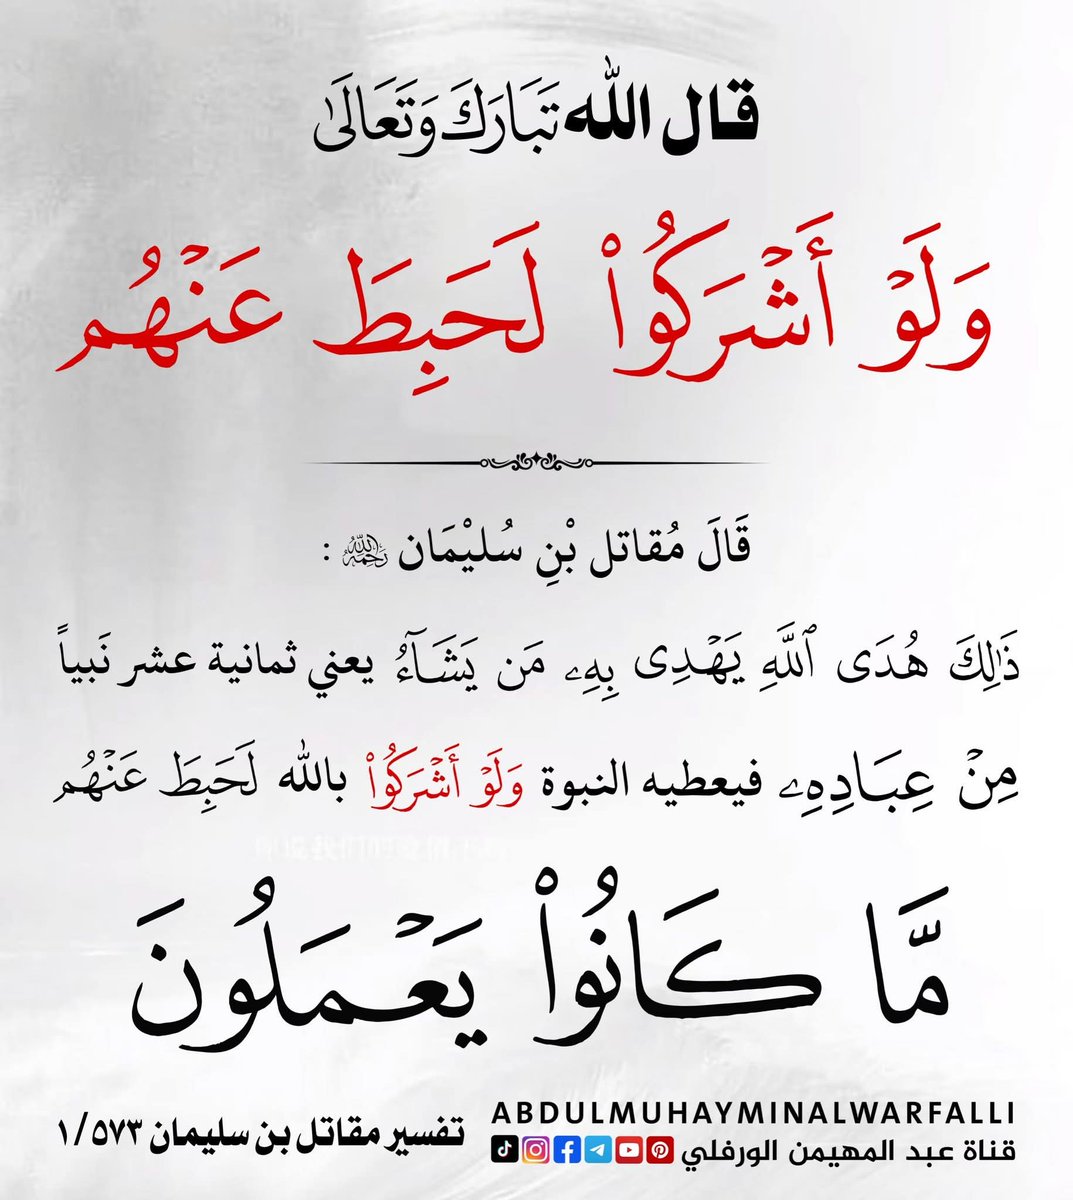 قال الله تَبَارَكَ وَتَعَالَىٰ
وَلَوۡ أَشۡرَكُواْ لَحَبِطَ عَنۡهُم
قَالَ مُقاتل بْنِ سُليْمَان رَحِمَهُ اللَّه :
ذَٰلِكَ هُدَى ٱللَّهِ يَهۡدِى بِهِۦ مَن يَشَآءُ يعني ثمانية عشر نَبياً
مِنۡ عِبَادِهِۦ فيعطيه النبوة وَلَوۡ أَشۡرَكُواْ بالله لَحَبِطَ عَنۡهُم
مَّا كَانُواْ يَعۡمَلُونَ
ABDULMUHAYMINALWARFALLI
قناة عبد المهيمن الورفلي
تفسير مقاتل بن سليمان ٥٧٣/١